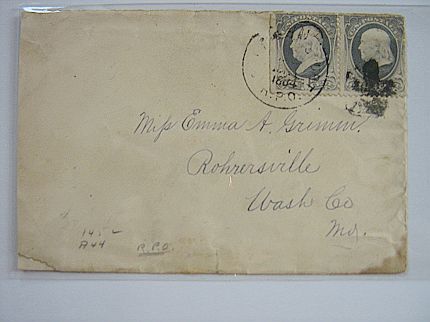 R.P.O.
Miſs Emma A. Grimm.
Rohrersville
Wash Co
Md.
145
A44 R.P.O.